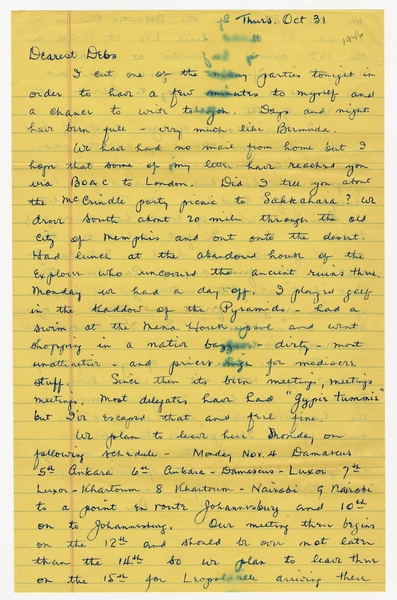 Thurs, Oct 31
1946
Dearest Debs
I cut one of the many parties tonight in
order to have a few minutes to myself and
a chance to write to you. Days and nights
have been full - very much like Bermuda.
We have had no mail from home but I
hope that some of my letters have reached you
via BOAC to London. Did I tell you about
the McCrindle party picnic to Sakkahara? We
drove South about 20 miles through the old
city of Memphis and out onto the desert.
Had lunch at the abandoned house of the
Explorer who uncovered the ancient ruins there.
Monday we had a day off. I played golf
in the shaddow of the Pyramids - had a
swim at the Mena House pool and went
shopping in a native - dirty - most
unattractive - and prices high for mediocre
stuff. Since then its been meetings, meetings
meetings. Most delegates have had "gyppie tummie"
but I've escaped that and feel fine.
We plan to leave here Monday on
following schedule - Monday Nov. 4 Damascus
5th Ankara 6th Ankara - Damascus - Luxor 7th
Luxor - Khartoum 8 Khartoum - Nairobi 9 Nairobi
to a point en route Johannesburg and 10th
on to Johannesburg. Our meeting there begins
on the 12th and should be over not later
than the 14th so we plan to leave there
on the 15th for Leopoldville arriving there